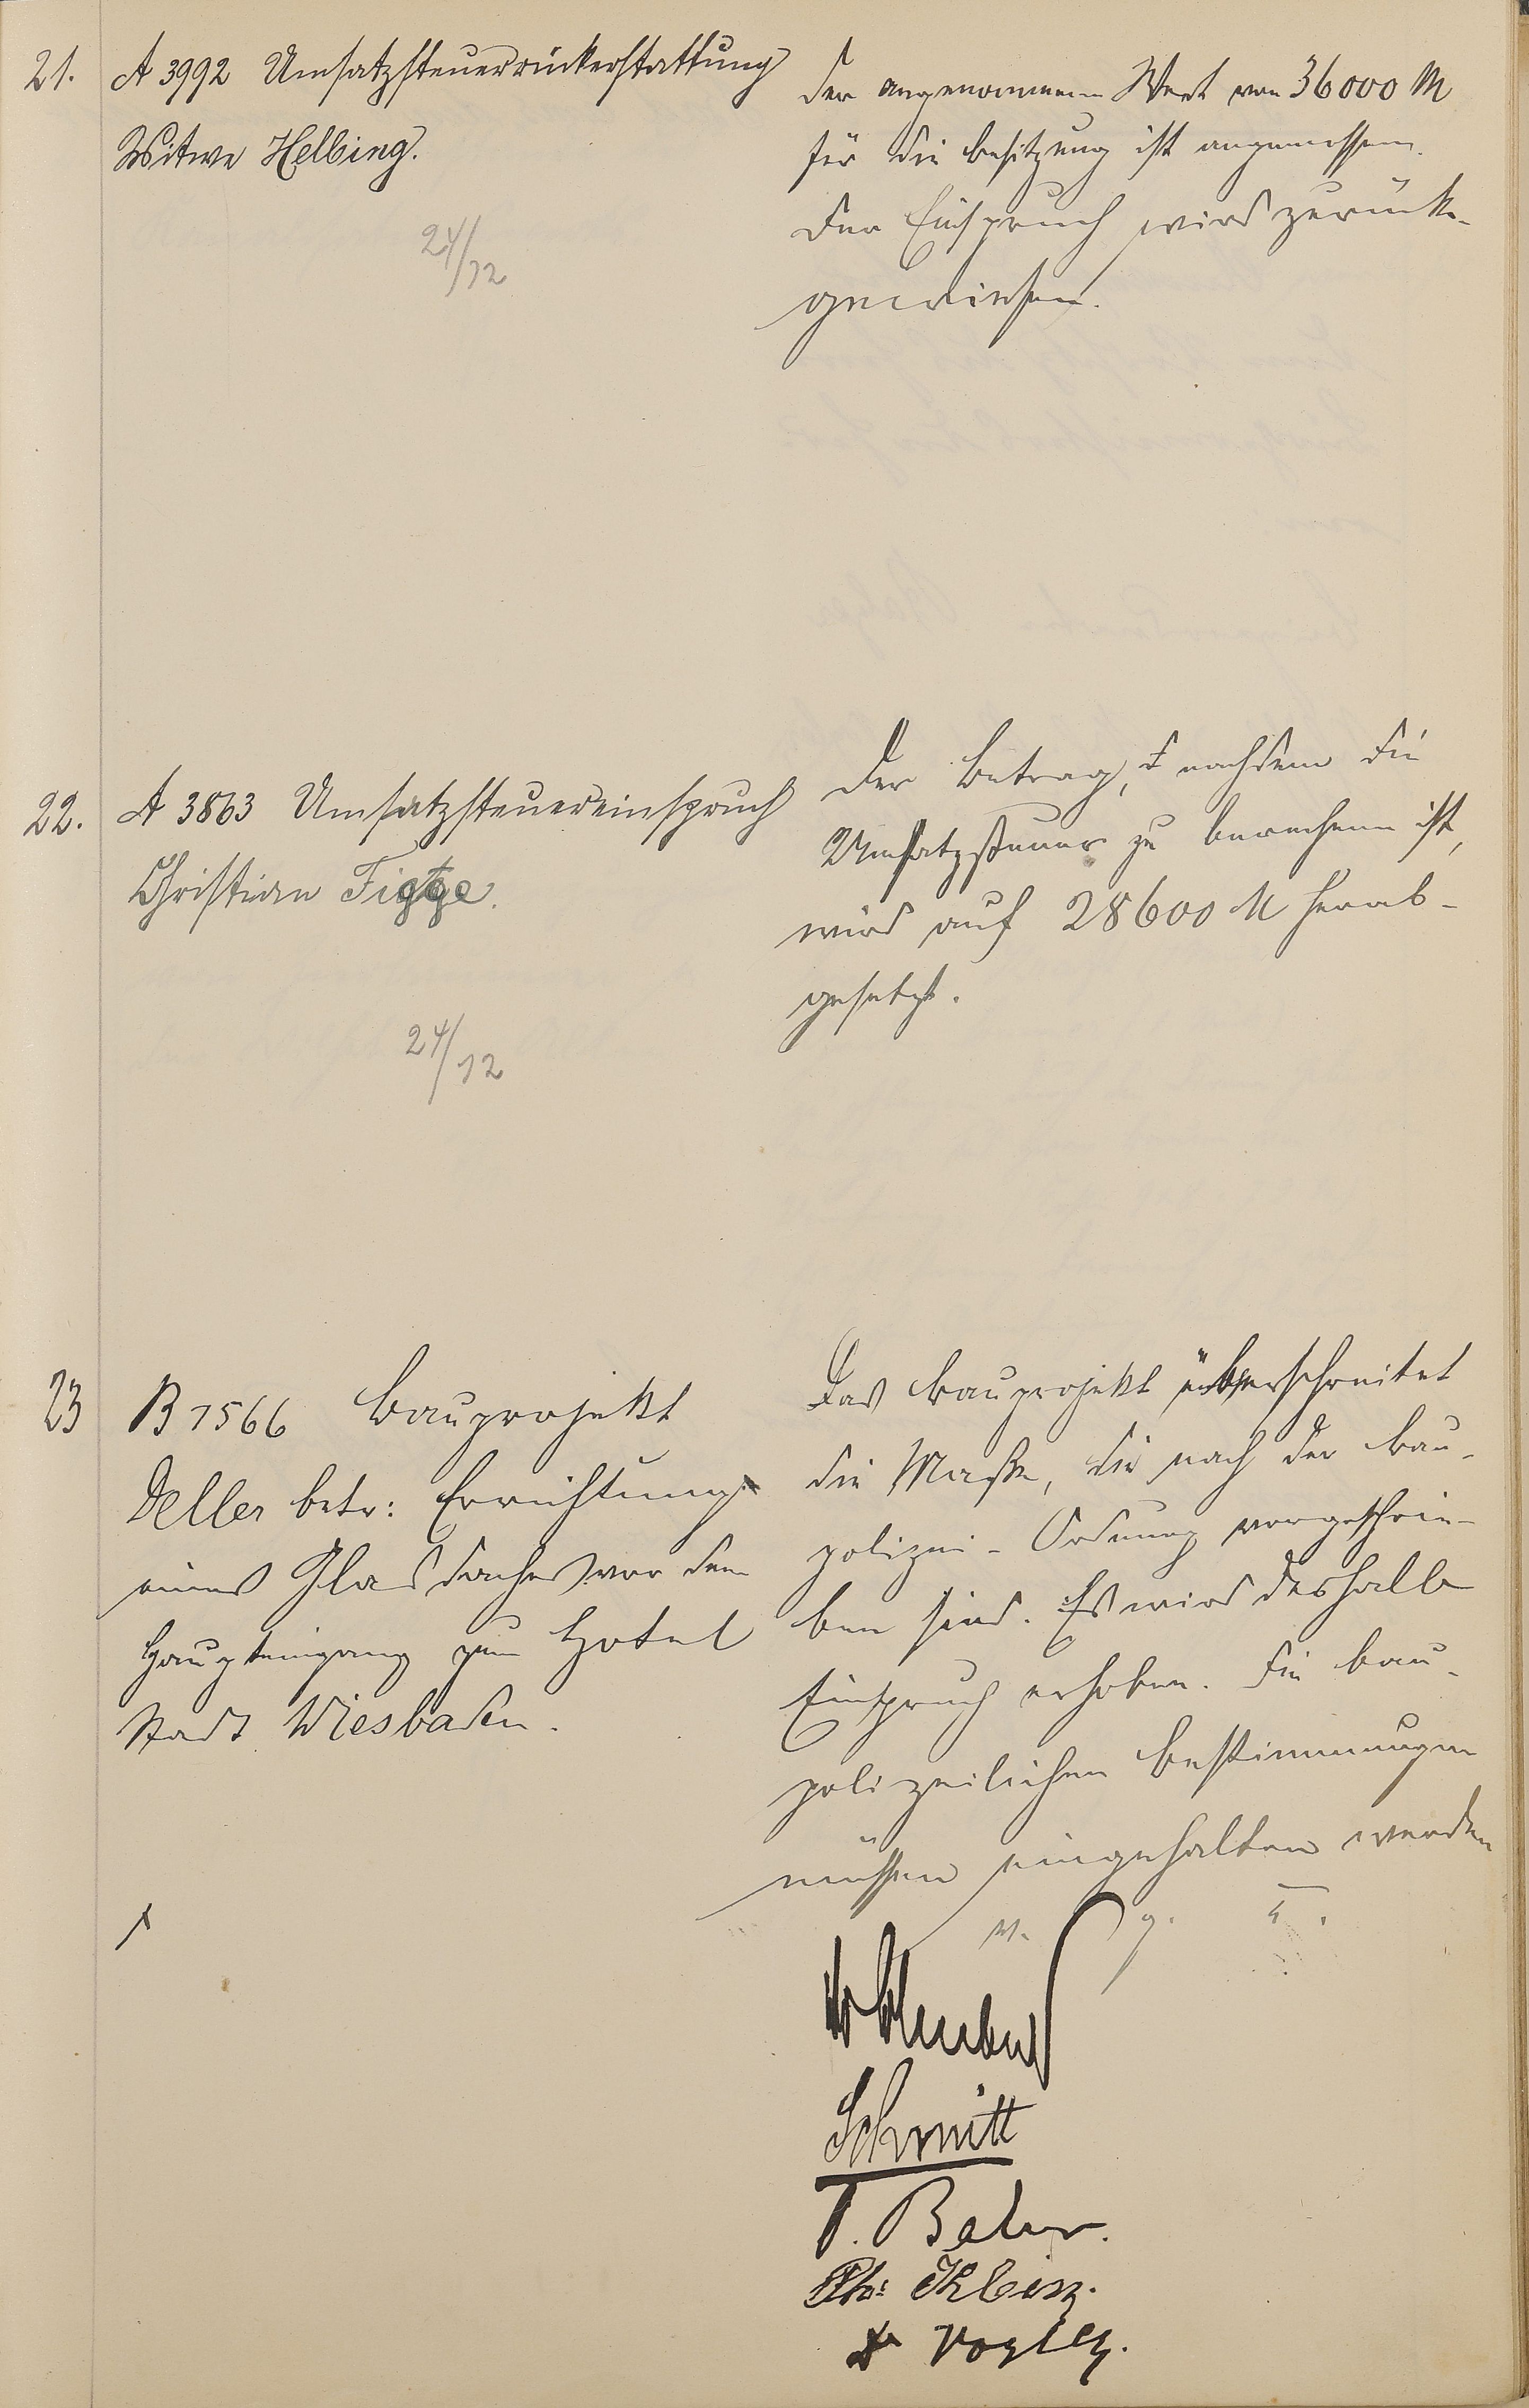 21.
A 3992 Umsatzsteuerrückerstattung
Witwe Helbing.
24/12
Der angenommene Wert von 36000 M
für die Besitzung ist angemessen.
Der Einspruch wird zurück-
gewiesen.
22.
A 3863 Umsatzsteuereinspruch
Christian Figge.
24/12
Der Betrag, nachdem die
Umsatzsteuer zu berechnen ist,
wird auf 28600 M herab-
gesetzt.
23
B 7566 Bauprojekt
Deller betr: Errichtung
eines Glasdaches vor dem
Haupteingang zum Hotel
Stadt Wiesbaden.
Das Bauprojekt überschreitet
die Maße, die nach der Bau-
polizei-Ordnung vorgeschrie-
ben sind. Es wird deshalb
Einspruch erhoben. Die bau-
polizeilichen Bestimmungen
müssen eingehalten werden
v. g. u.
Schmitt